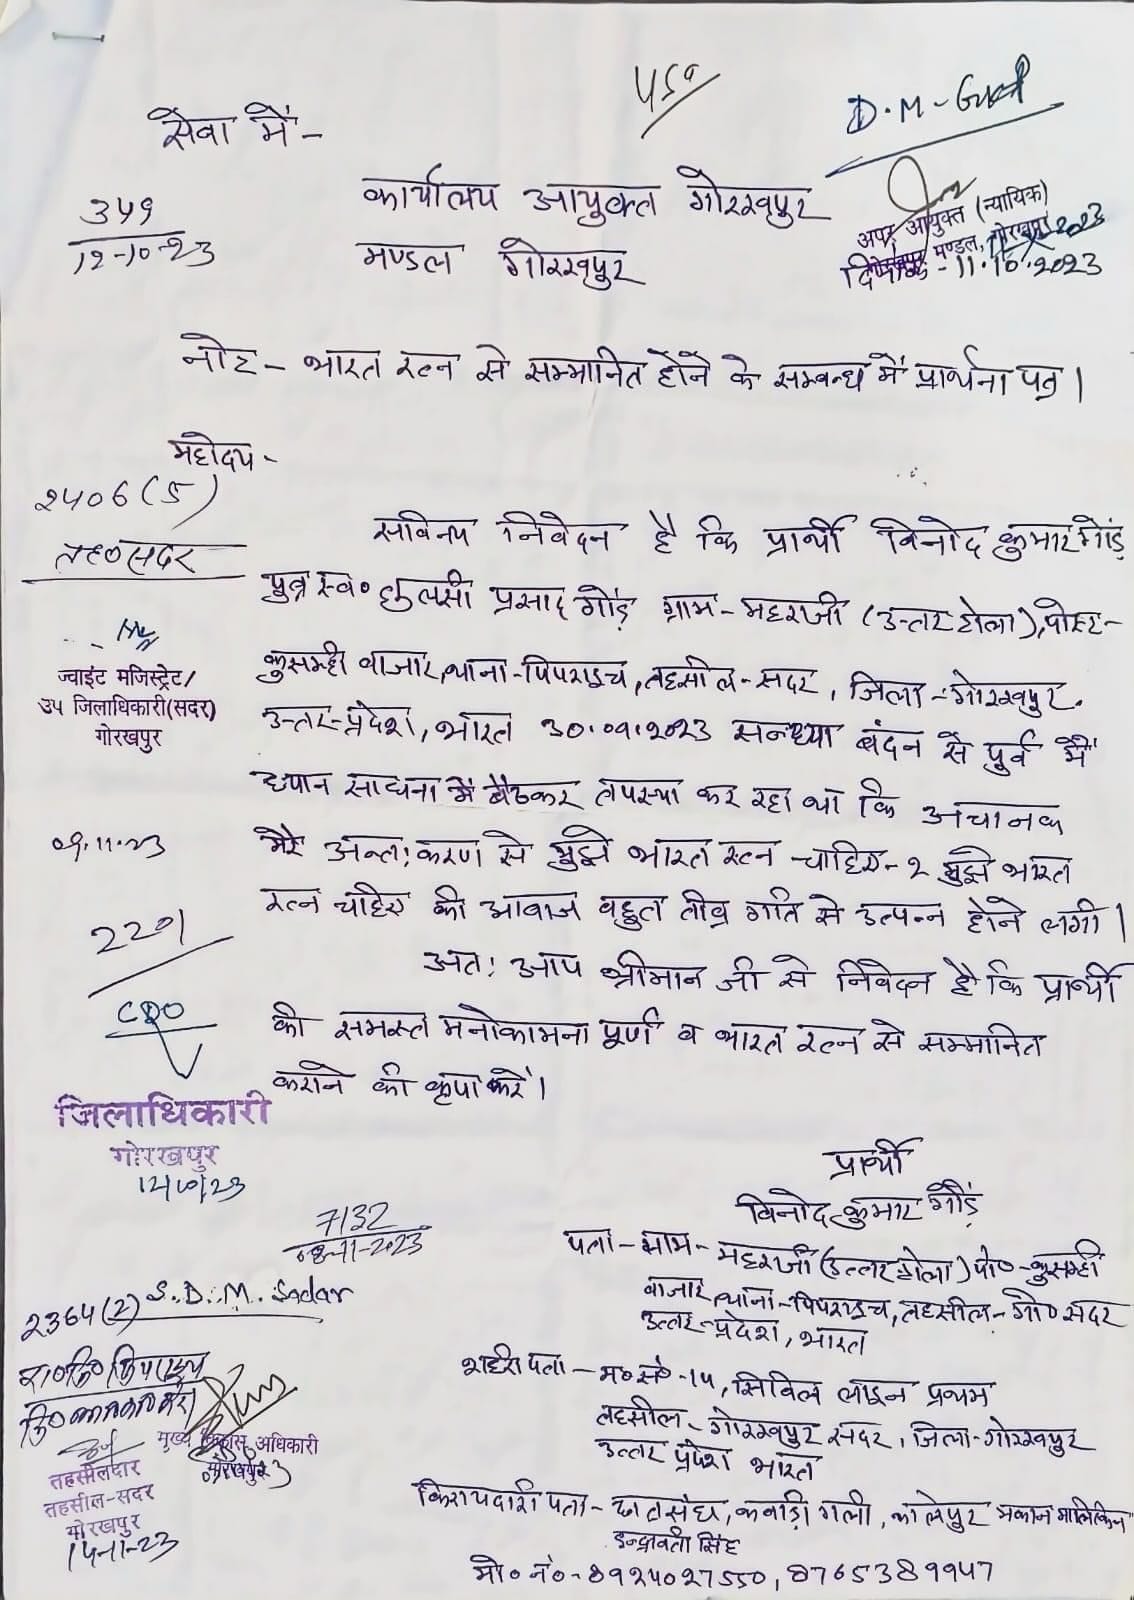 450
D.M-
सेवा में-
कार्यालय आयुक्त गोरखपुर
मण्डल गोरखपुर
351
12-10-23
अपर आयुक्त (न्यायिक)
गोरखपुर मण्डल, गोरखपुर
दिनांक-11.10.2023
नोट- भारत रत्न से सम्मानित होने के सम्बन्ध में प्रार्थना पत्र।
महोदय-
2406(5)
तह०सदर
ज्वाइंट मजिस्ट्रेट/
उप जिलाधिकारी(सदर)
गोरखपुर
सविनय निवेदन है कि प्रार्थी विनोद कुमार गोंड़
पुत्र स्व० तुलसी प्रसाद गोंड़ ग्राम-महराजी (उत्तर टोला), पोस्ट-
कुसम्ही बाजार, थाना-पिपराइच, तहसील-सदर, जिला-गोरखपुर,
उत्तर-प्रदेश, भारत 30.09.2023 सन्ध्या बंदन से पुर्व में
ध्यान साधना में बैठकर तपस्या कर रहा था कि अचानक
मेरे अन्त:करण से मुझे भारत रत्न चाहिए-२ मुझे भारत
रत्न चाहिए की आवाज बहुत तीव्र गति से उत्पन्न होने लगी।
अत: आप श्रीमान जी से निवेदन है कि प्रार्थी
की समस्त मनोकामना पूर्ण व भारत रत्न से सम्मानित
कराने की कृपा करें।
09.11.23
2201
CDO
जिलाधिकारी
गोरखपुर
12/10/23
7132
08-11-2023
2364(2) S.D.M. Sadar
मुख्य विकास अधिकारी
गोरखपुर
तहसीलदार
तहसील-सदर
गोरखपुर
14-11-23
प्रार्थी
विनोद कुमार गोंड़
पता-ग्राम-महराजी (उत्तर टोला) पो०-कुसम्ही
बाजार, थाना-पिपराइच, तहसील-गो० सदर
उत्तर-प्रदेश, भारत
शहरी पता-म०सं०-14, सिविल लाइन प्रथम
तहसील-गोरखपुर सदर, जिला-गोरखपुर
उत्तर प्रदेश भारत
किरायदारी पता- छात्रसंघ, कबाड़ी गली, कालेपुर मकान मालिकिन
इन्द्रावती सिंह
मो० नं०-8924027550, 8765389947